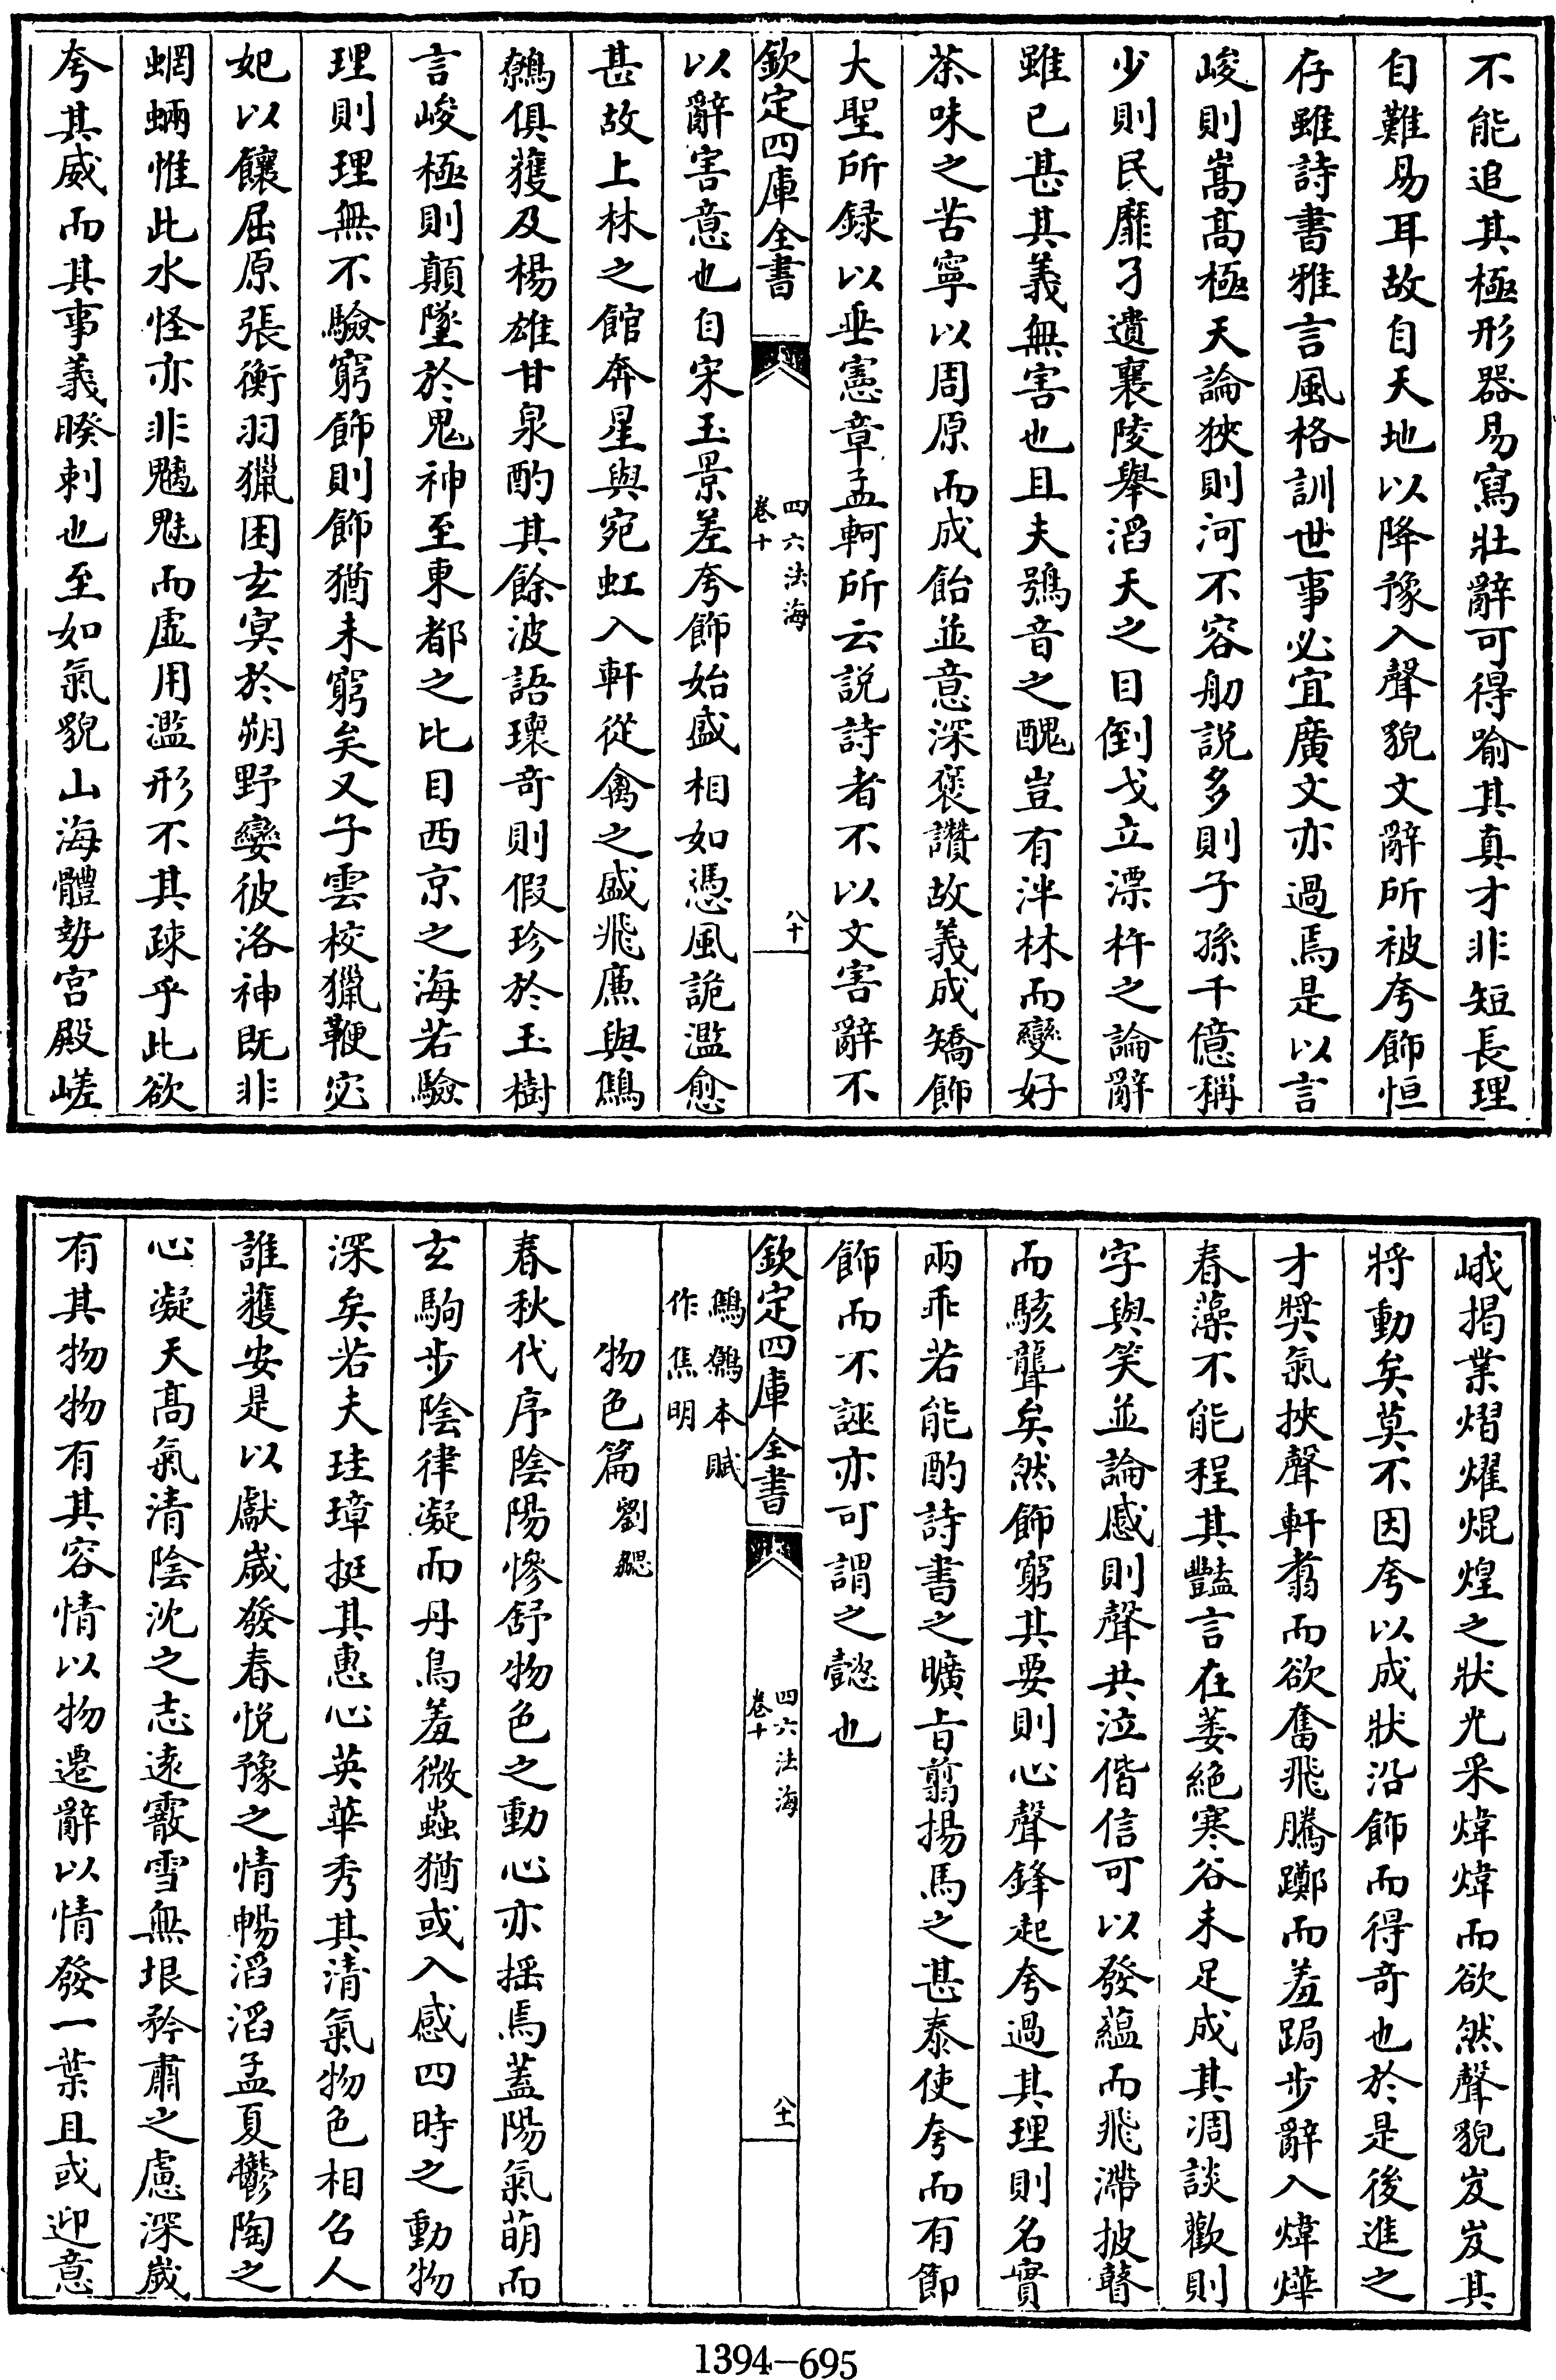 不能追其極形器易寫壯辭可得喻其真才非短長理
自難易耳故自天地以降豫入聲貌文辭所被夸飾恒
存雖詩書雅言風格訓世事必宜廣文亦過焉是以言
峻則嵩高極天論狹則河不容舠説多則子孫千億稱
少則民靡孑遺襄陵舉滔天之目倒戈立漂杵之論辭
雖已甚其義無害也且夫鴞音之醜豈有泮林而變好
荼味之苦寧以周原而成飴並意深褒讚故義成矯飾
大聖所録以垂憲章孟軻所云説詩者不以文害辭不
欽定四庫全書
四六法海
卷十
八十
以辭害意也自宋玉景差夸飾始盛相如憑風詭濫愈
甚故上林之館奔星與宛虹入軒從禽之盛飛廉與鷦
鷯俱獲及楊雄甘泉酌其餘波語瓌竒則假珍於玉樹
言峻極則顛墜於鬼神至東都之比目西京之海若驗
理則理無不驗窮飾則飾猶未窮矣又子雲校獵鞭宓
妃以饟屈原張衡羽獵困玄冥於朔野孌彼洛神既非
蝄蜽惟此水怪亦非魑魅而虚用濫形不其疎乎此欲
夸其威而其事義暌刺也至如氣貌山海體勢宫殿嵯
峨揭業熠燿焜煌之狀光采煒煒而欲然聲貌岌岌其
將動矣莫不因夸以成狀沿飾而得竒也於是後進之
才奬氣挾聲軒翥而欲奮飛騰躑而羞跼步辭入煒燁
春藻不能程其豔言在萎絶寒谷未足成其凋談歡則
字與笑並論慼則聲共泣偕信可以發藴而飛滯披瞽
而駭聾矣然飾窮其要則心聲鋒起夸過其理則名實
兩乖若能酌詩書之曠㫖翦揚馬之甚泰使夸而有節
飾而不誣亦可謂之懿也
欽定四庫全書
四六法海
卷十
八十一
鷦鷯本賦
作焦明
物色篇 劉勰
春秋代序陰陽慘舒物色之動心亦揺焉蓋陽氣萌而
玄駒步陰律凝而丹鳥羞微蟲猶或入感四時之動物
深矣若夫珪璋挺其惠心英華秀其清氣物色相召人
誰獲安是以獻歲發春悦豫之情暢滔滔孟夏鬱陶之
心凝天高氣清陰沈之志遠霰雪無垠矜肅之慮深歲
有其物物有其容情以物遷辭以情發一葉且或迎意
1394-695